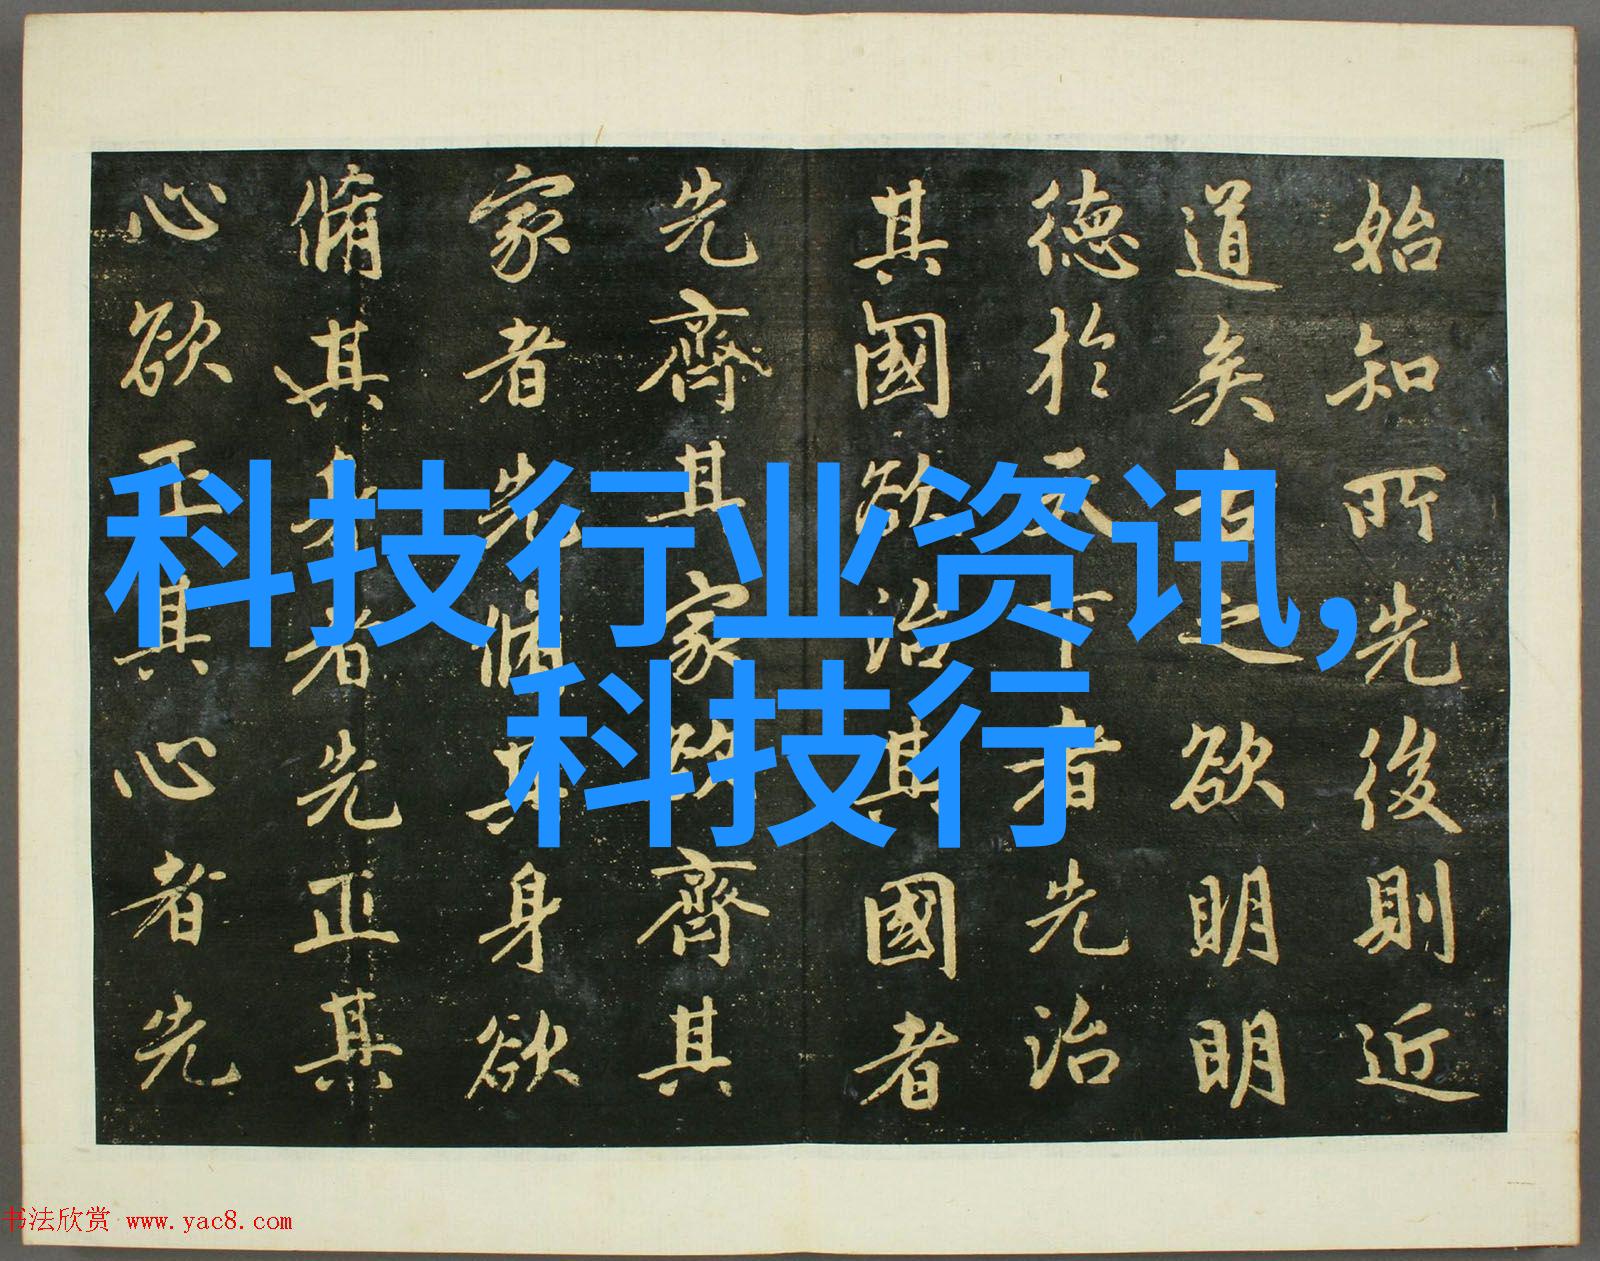 始知所先後則近
道矣古之欲明明
德於天下者先治
其國欲治其國者
先齊其家欲齊其
家者先脩其身欲
脩其身者先正其
心欲正其心者先
科技行业资讯,
科技行
书法欣赏 www.yac8.com